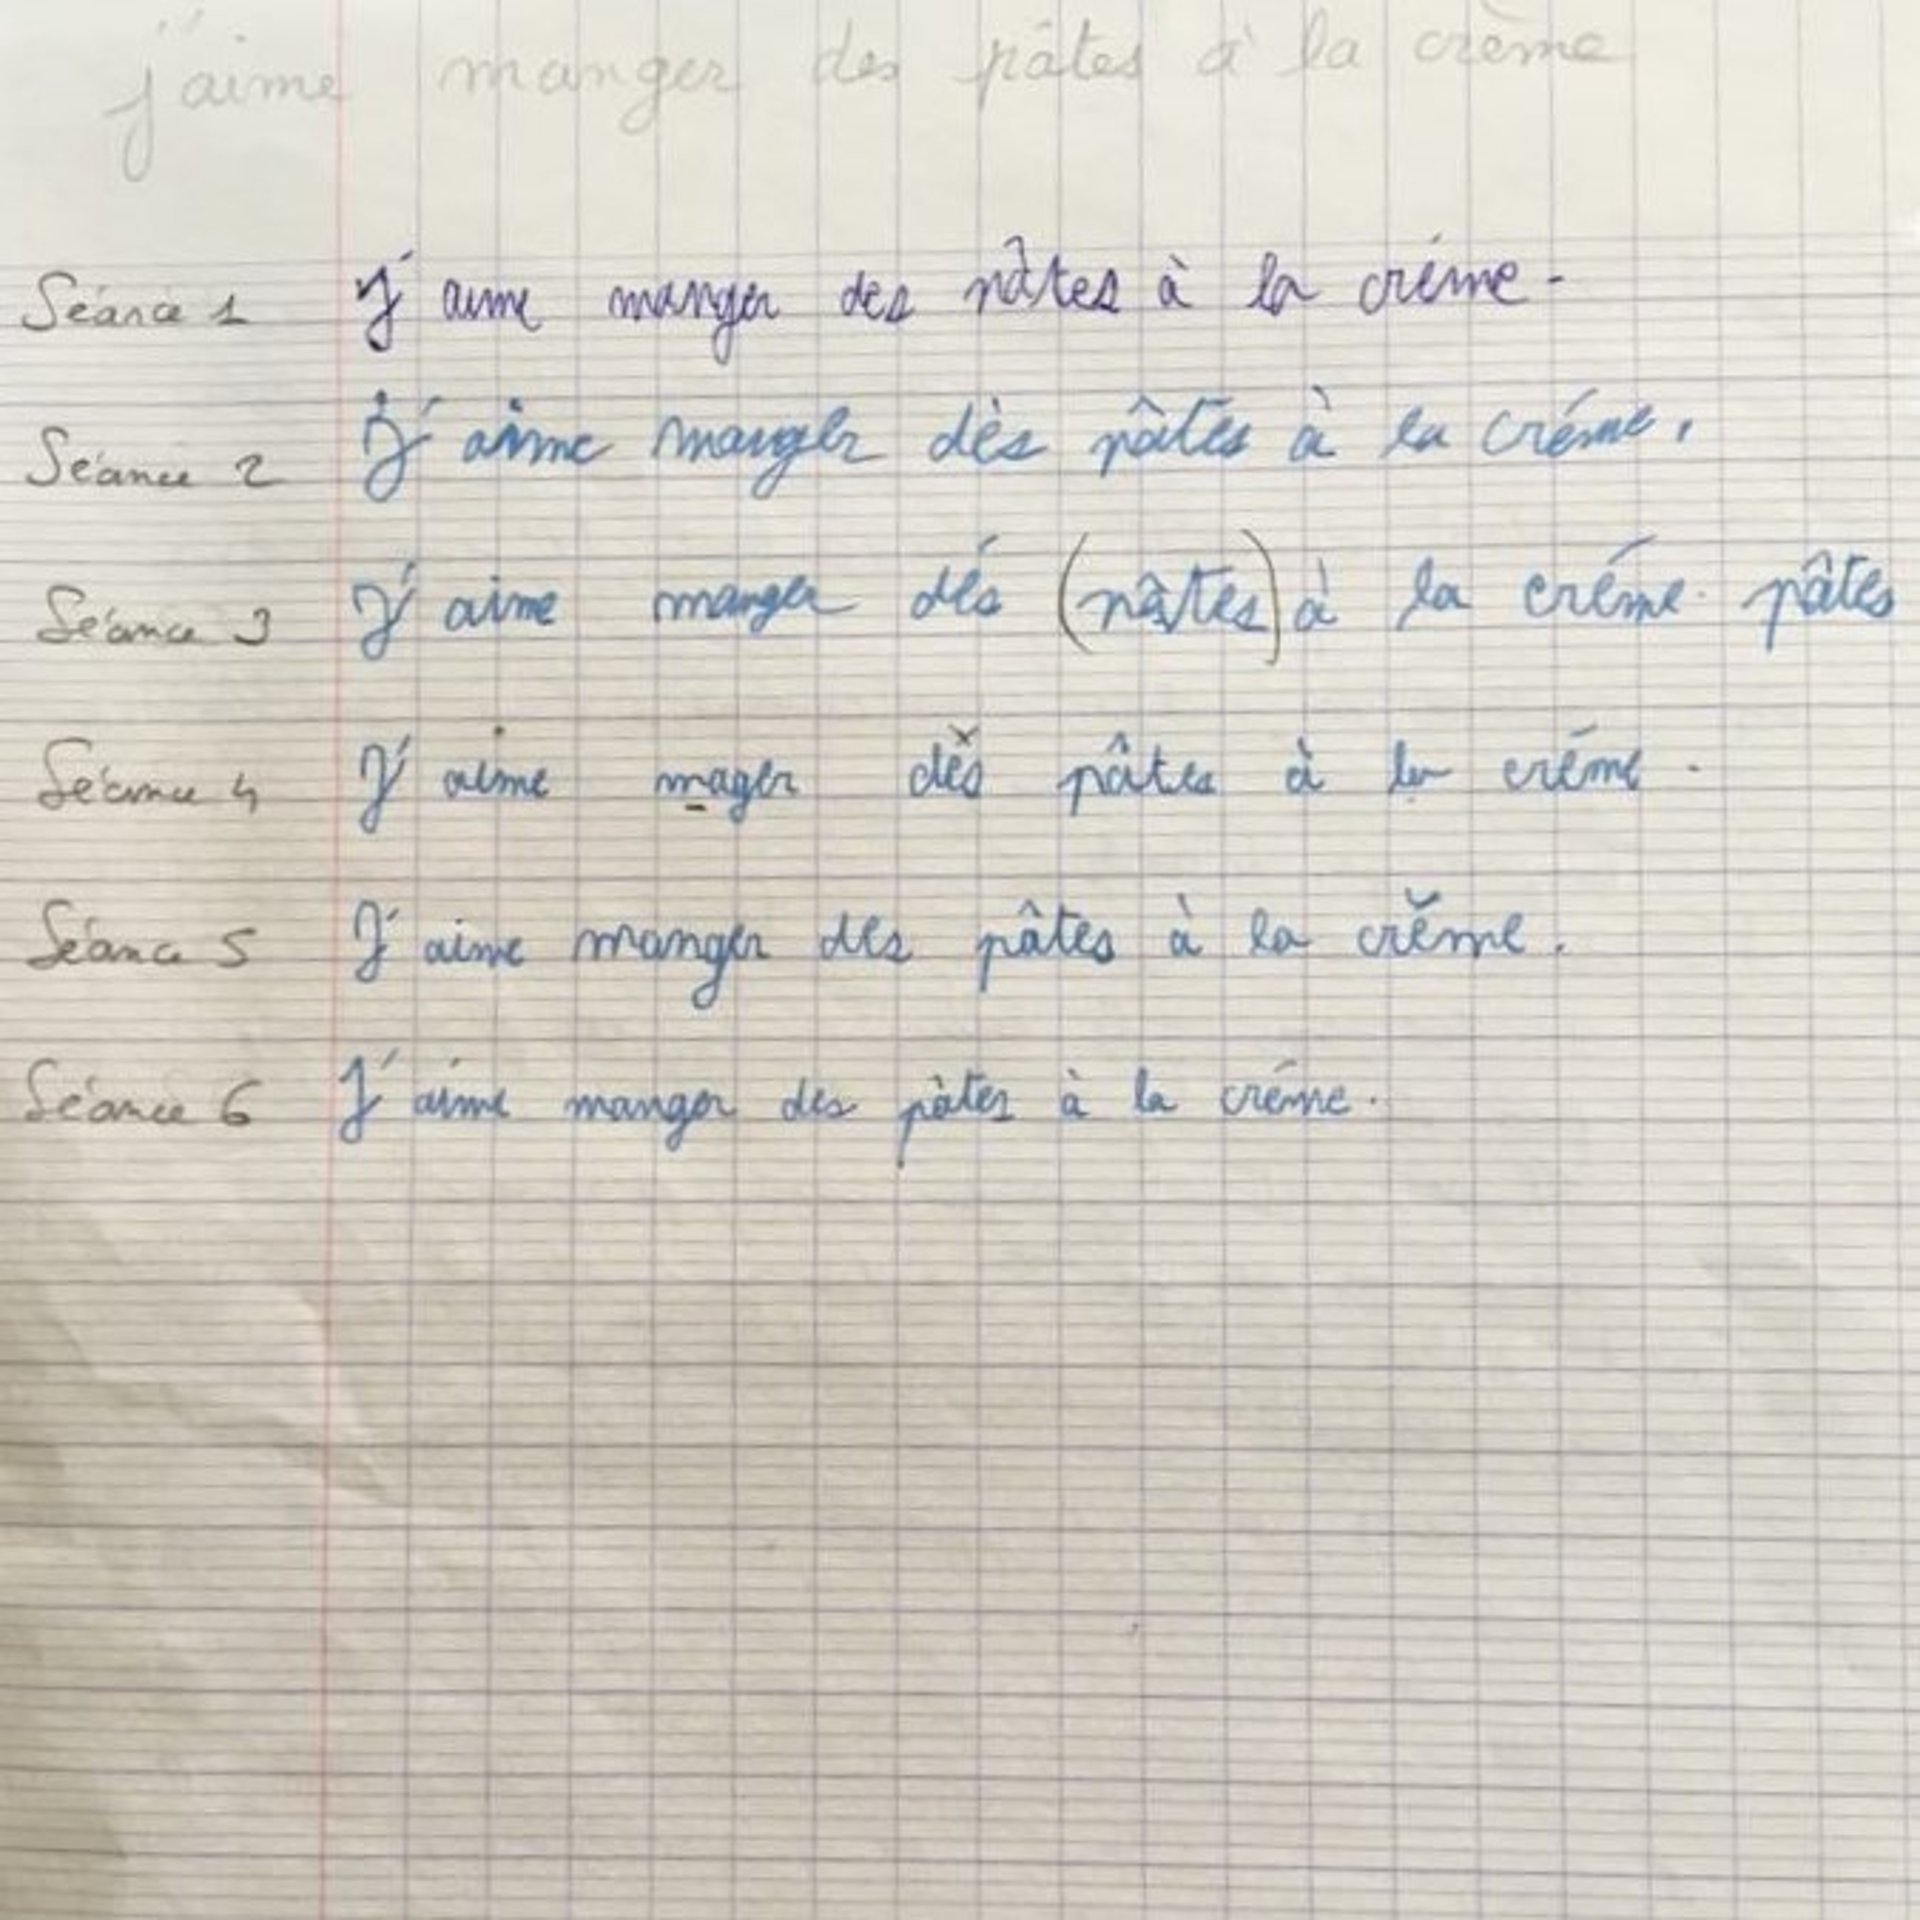 j'aime manger des pâtes à la crème
Séance 1 J'aime manger des nâtes à la créme.
Séance 2 J'aime manger dès pâtes à la créme.
Séance 3 J'aime manger dés (nâtes) à la créme. pâtes
Séance 4 J'aime mager dés pâtes à la créme.
Séance 5 J'aime manger des pâtes à la crĕme.
Séance 6 J'aime manger des pàtes à la créme.